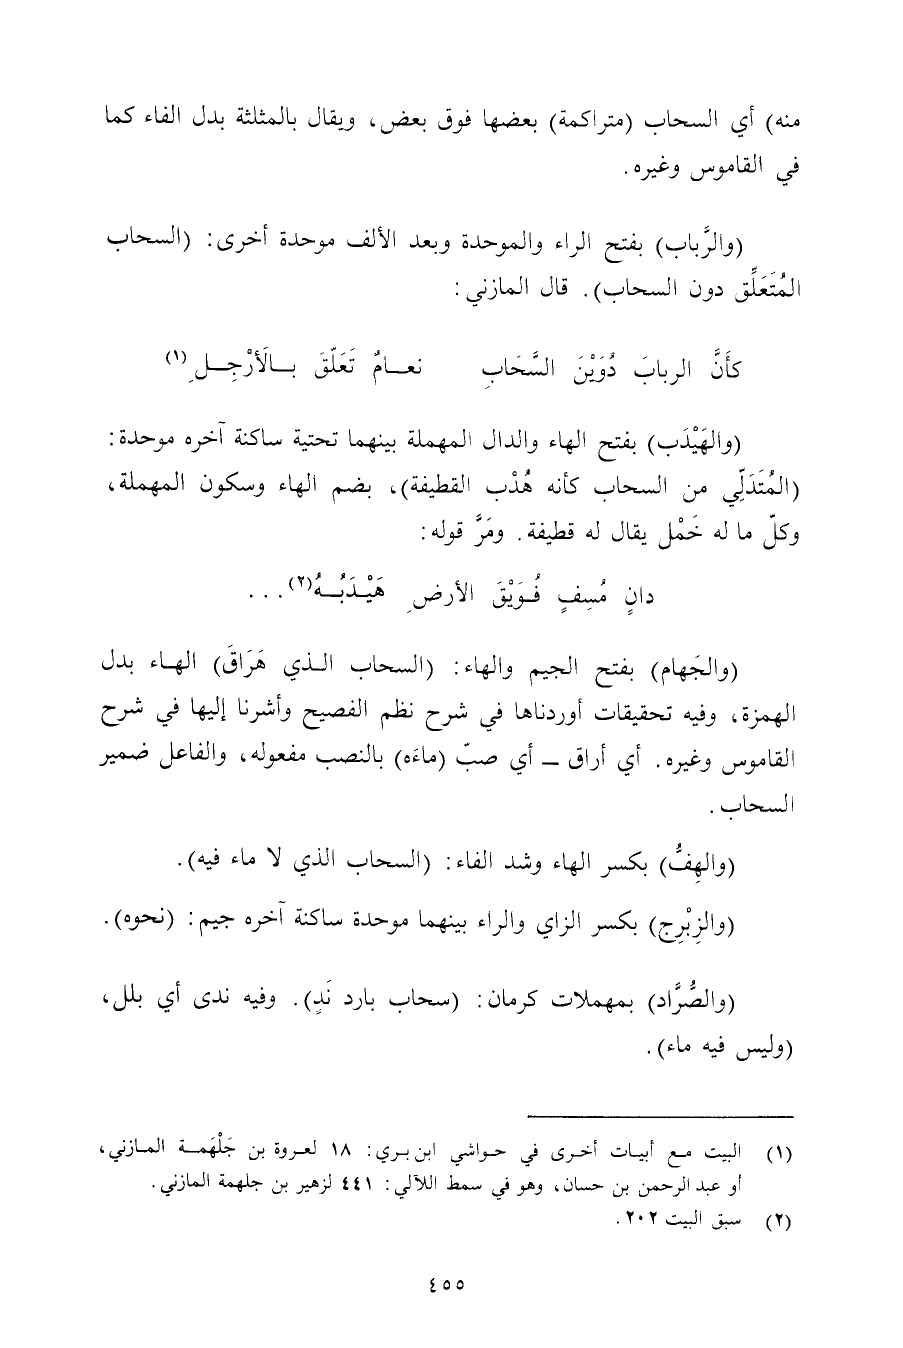 منه) أي السحاب (متراكمة) بعضها فوق بعض، ويقال بالمثلثة بدل الفاء كما
في القاموس وغيره.
(والرَّباب) بفتح الراء والموحدة وبعد الألف موحدة أخرى: (السحاب
المُتَعَلِّق دون السحاب). قال المازني:
كأَنَّ الربابَ دُوَيْنَ السَّحَابِ نعـامٌ تَعَلّقَ بـالَأرْجِـلِ(١)
(والهَيْدَب) بفتح الهاء والدال المهملة بينهما تحتية ساكنة آخره موحدة:
(المُتَدَلِّي من السحاب كأنه هُدْب القطيفة)، بضم الهاء وسكون المهملة،
وكلّ ما له خَمْل يقال له قطيفة. ومَرَّ قوله:
دانٍ مُسِفٍ فُـوَيْقَ الأرضِ هَيْـدَبُـهُ(٢)...
(والجَهام) بفتح الجيم والهاء: (السحاب الـذي هَرَاقَ) الهـاء بدل
الهمزة، وفيه تحقيقات أوردناها في شرح نظم الفصيح وأشرنا إليها في شرح
القاموس وغيره. أي أراق ــ أي صبّ (ماءَه) بالنصب مفعوله، والفاعل ضمير
السحاب.
(والهِفُّ) بكسر الهاء وشد الفاء: (السحاب الذي لا ماء فيه).
(والزِبْرِج) بكسر الزاي والراء بينهما موحدة ساكنة آخره جيم: (نحوه).
(والصُّرَّاد) بمهملات كرمان: (سحاب بارد نَدٍ). وفيه ندى أي بلل،
(وليس فيه ماء).
(١) البيت مـع أبيـات أخـرى في حـواشي ابن بـري: ١٨ لعـروة بن جَلْهَمـة المـازني،
أو عبد الرحمن بن حسان، وهو في سمط اللآلي: ٤٤١ لزهير بن جلهمة المازني.
(٢) سبق البيت ٢٠٢.
٤٥٥